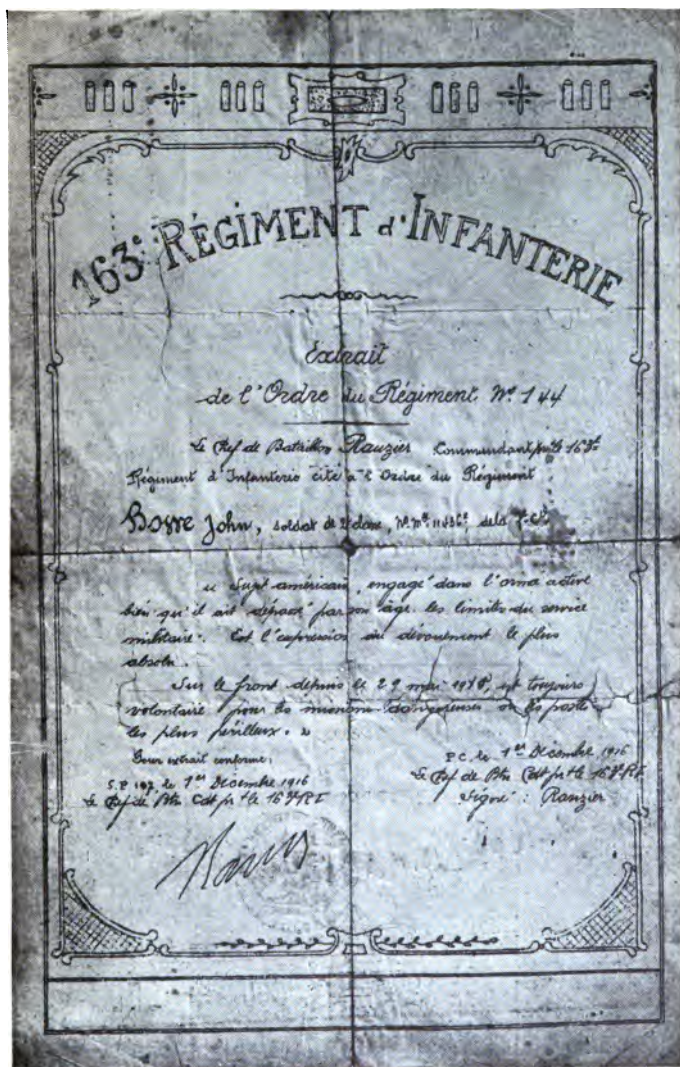 163e RÉGIMENT d'INFANTERIE
Extrait
de l'Ordre du Régiment N° 144
Le Chef de Bataillon Rauzier Commandant p.i. le 163e
Régiment d'Infanterie cite à l'Ordre du Régiment
John, soldat de 2e classe, N° Mle de la 7e Cie
« Sujet américain, engagé dans l'arme active
bien qu'il ait dépassé par son âge les limites du service
militaire. Est l'expression du dévouement le plus
absolu.
Sur le front depuis le 29 mai est toujours
volontaire pour les missions dangereuses ou les postes
les plus périlleux. »
Pour extrait conforme:
S.P. 197, le 1er Décembre 1916
Le Chef de Btn Cdt pr t le 163e RI
P.C. le 1er Décembre 1916
Le Chef de Btn Cdt pr t le 163e RI
Signé : Rauzier